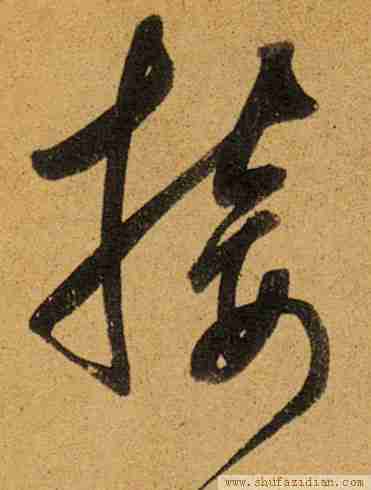 接
www.shufazidian.com